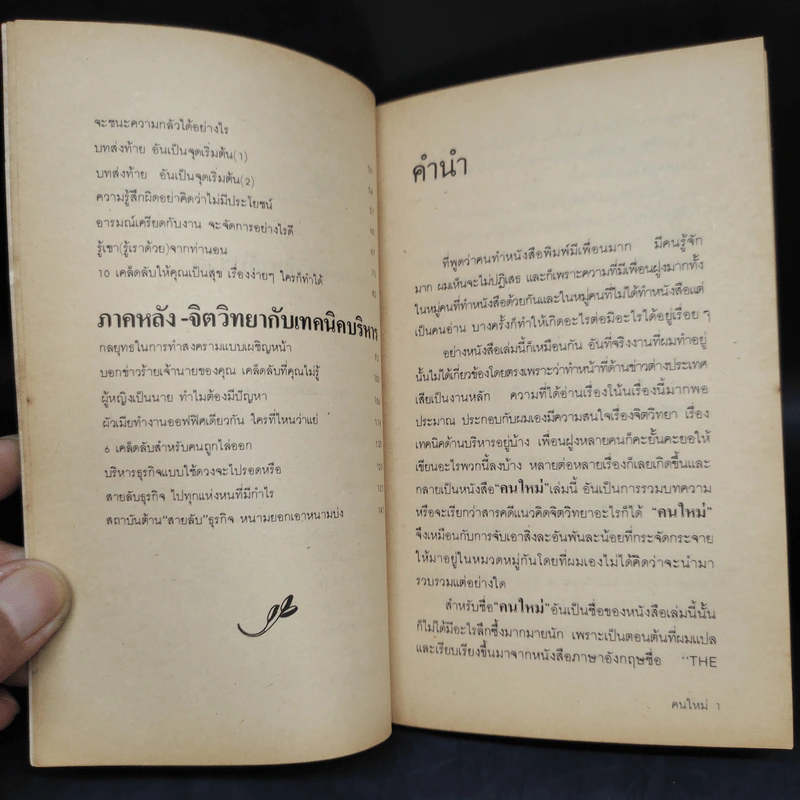 จะชนะความกลัวได้อย่างไร
บทส่งท้าย อันเป็นจุดเริ่มต้น(1)
บทส่งท้าย อันเป็นจุดเริ่มต้น(2)
ความรู้สึกผิดอย่าคิดว่าไม่มีประโยชน์
อารมณ์เครียดกับงาน จะจัดการอย่างไรดี
รู้เขา(รู้เราด้วย)จากท่านอน
10 เคล็ดลับให้คุณเป็นสุข เรื่องง่ายๆ ใครก็ทำได้
ภาคหลัง-จิตวิทยากับเทคนิคบริหาร
กลยุทธในการทำสงครามแบบเผชิญหน้า
บอกข่าวร้ายเจ้านายของคุณ เคล็ดลับที่คุณไม่รู้
ผู้หญิงเป็นนาย ทำไมต้องมีปัญหา
ผัวเมียทำงานออฟฟิศเดียวกัน ใครที่ไหนว่าแย่
6 เคล็ดลับสำหรับคนถูกไล่ออก
บริหารธุรกิจแบบใช้ดวงจะไปรอดหรือ
สายลับธุรกิจ ไปทุกแห่งหนที่มีกำไร
สถาบันต้าน"สายลับ"ธุรกิจ หนามยอกเอาหนามบ่ง
คำนำ
ที่พูดว่าคนทำหนังสือพิมพ์มีเพื่อนมาก มีคนรู้จัก
มาก ผมเห็นจะไม่ปฏิเสธ และก็เพราะความที่มีเพื่อนฝูงมากทั้ง
ในหมู่คนที่ทำหนังสือด้วยกันและในหมู่คนที่ไม่ได้ทำหนังสือแต่
เป็นคนอ่าน บางครั้งก็ทำให้เกิดอะไรต่อมิอะไรได้อยู่เรื่อย ๆ
อย่างหนังสือเล่มนี้ก็เหมือนกัน อันที่จริงงานที่ผมทำอยู่
นั้นไม่ได้เกี่ยวข้องโดยตรงเพราะว่าทำหน้าที่ด้านข่าวต่างประเทศ
เสียเป็นงานหลัก ความที่ได้อ่านเรื่องโน้นเรื่องนี้มากพอ
ประมาณ ประกอบกับผมเองมีความสนใจเรื่องจิตวิทยา เรื่อง
เทคนิคด้านบริหารอยู่บ้าง เพื่อนฝูงหลายคนก็คะยั้นคะยอให้
เขียนอะไรพวกนี้ลงบ้าง หลายต่อหลายเรื่องก็เลยเกิดขึ้นและ
กลายเป็นหนังสือ"คนใหม่"เล่มนี้ อันเป็นการรวมบทความ
หรือจะเรียกว่าสารคดีแนวคิดจิตวิทยาอะไรก็ได้ "คนใหม่"
จึงเหมือนกับการจับเอาสิ่งละอันพันละน้อยที่กระจัดกระจาย
ให้มาอยู่ในหมวดหมู่กันโดยที่ผมเองไม่ได้คิดว่าจะนำมา
รวบรวมแต่อย่างใด
สำหรับชื่อ"คนใหม่"อันเป็นชื่อของหนังสือเล่มนี้นั้น
ก็ไม่ได้มีอะไรลึกซึ้งมากมายนัก เพราะเป็นตอนต้นที่ผมแปล
และเรียบเรียงขึ้นมาจากหนังสือภาษาอังกฤษชื่อ "THE
คนใหม่ 1